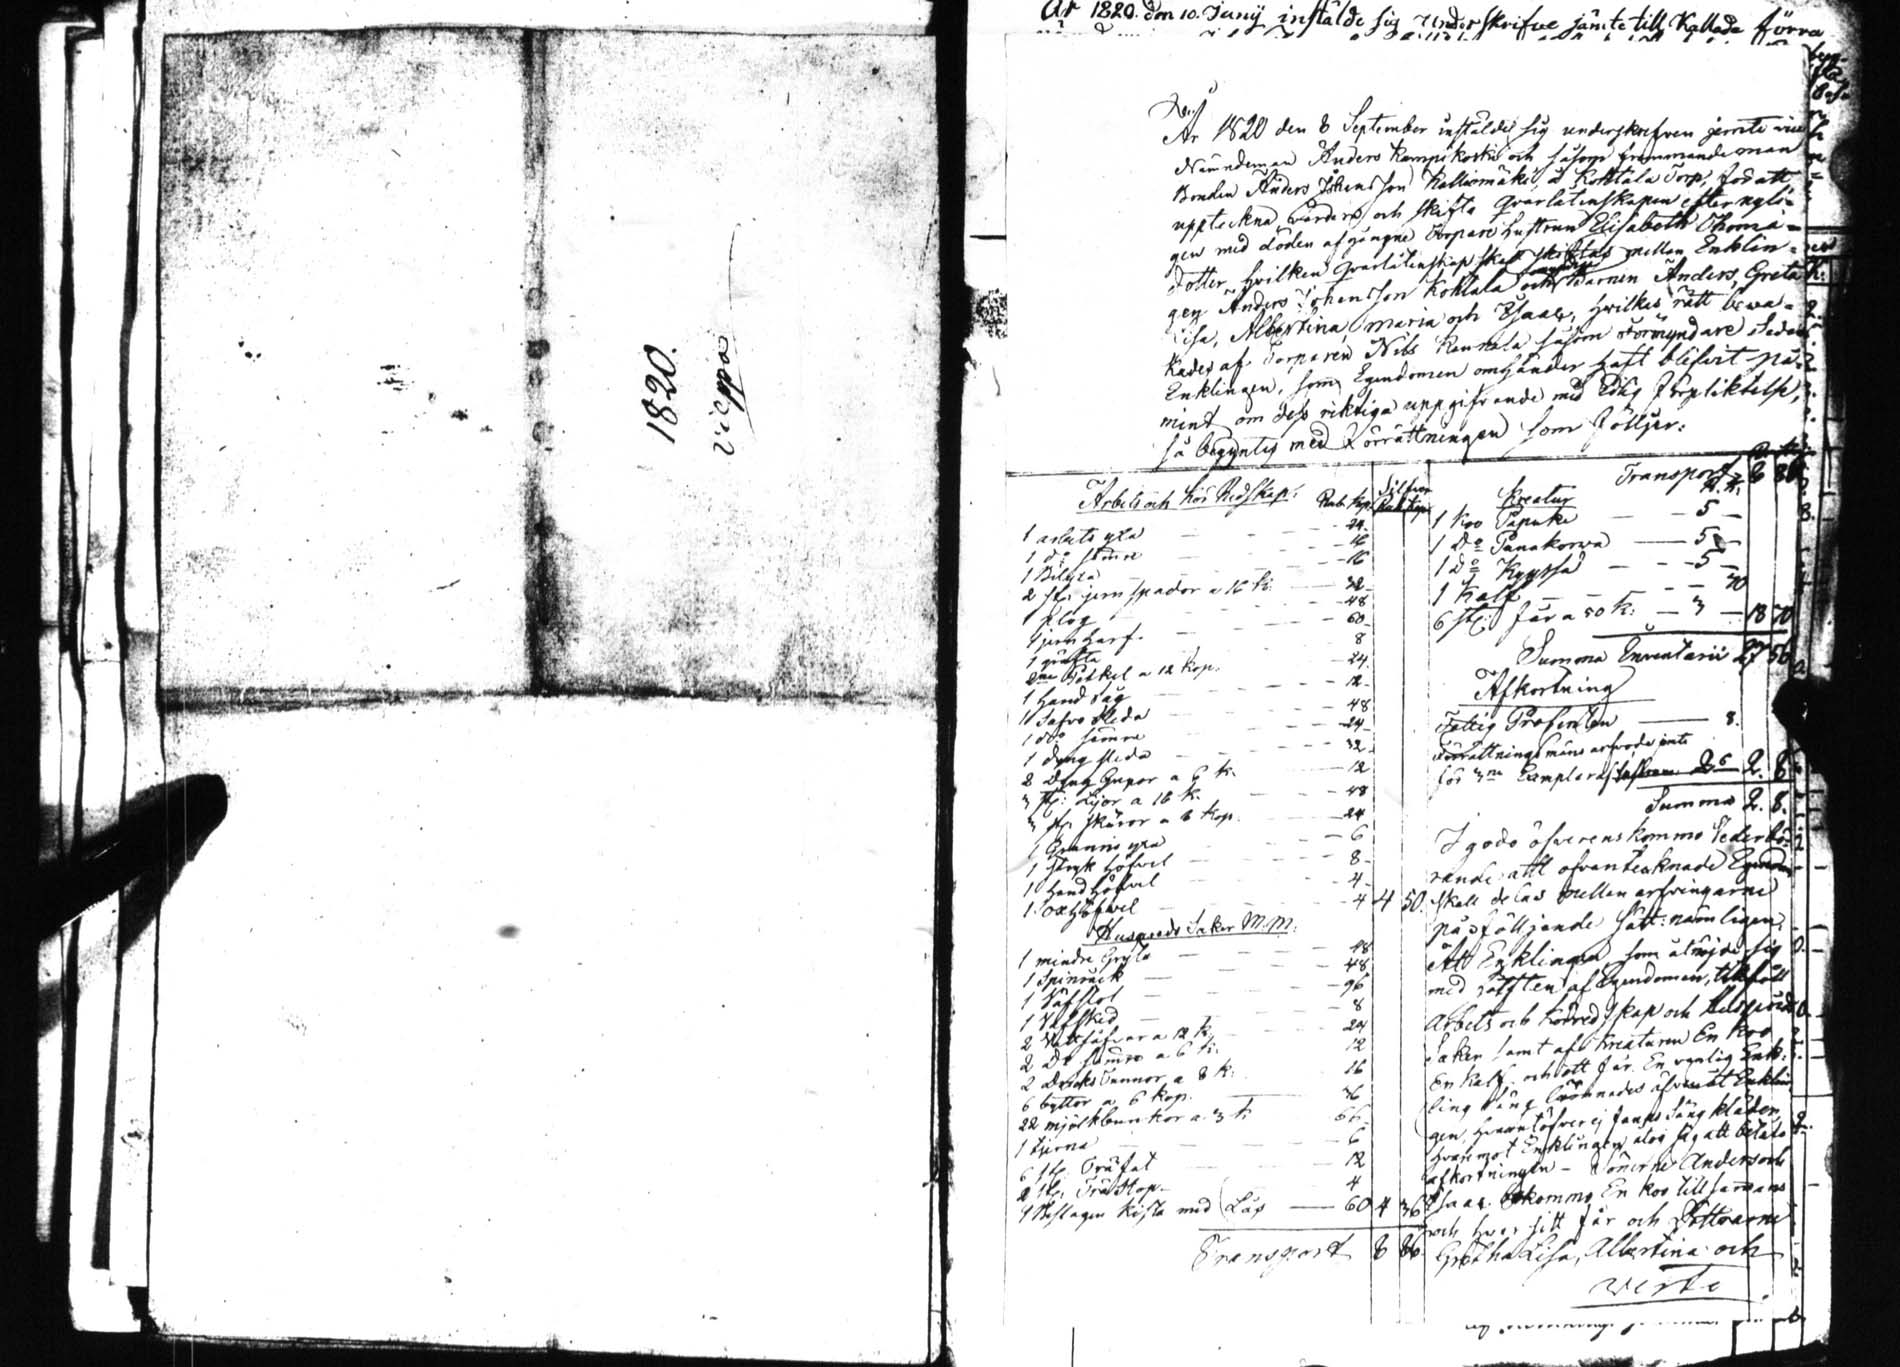 1820.
vicppo
År 1820. den 10. Junij instälde sig Underskrifve jämte till Kallade förra
År 1820 den 8 September instälde sig underskrefven jemte
Nämndeman Anders Kampikoski och såsom frammande man
Bonden Anders Johansson Kalliomäki, å Kohtala Torp, för att
uppteckna värdera och skifta qvarlåtenskapen efter nyli=
gen med döden afgångne Torpare hustrun Elisabeth Thoma=
dotter, hvilken qvarlåtenskap skall skiftas mellan Enklin=
gen Anders Johansson Kohtala och Barnen Anders, Greta
Lisa, Albertina, Maria och Isaac, hvilkas rätt beva=
kades af Torparen Nils Kauhala såsom Förmyndare. Sedan
Enklingen, som Egendomen omhänder haft blifvit på=
mint om dess riktiga uppgifvande med Edlig förpliktelse,
så begyntes med Förrättningen som följer:
Arbets och Kör Redskap: Rub. Kop. Silfver Rub. Kop.
1 arbets yxa 24
1 do sämre 16
1 Bilyxa 16
2 st: jern spador a 16 k: 32
1 plog 48
1 jern harf 60
1 8
2ne a 12 kop. 24
1 hand såg 12
1 släda 48
1 do sämre 24
1 dyng släda 32
2 Dyng a 6 k. 12
3 st: Lijor a 16 k. 48
3 st: skäror a 8 kop. 24
1 yxa 6
1 höfvel 8
1 Hand höfvel 4
1 höfvel 4 4 50
Husgeråds Saker M.M.
1 mindre Gryta 48
1 Spinråck 48
1 Väfstol 96
1 Väfsked 8
2 a 12 k. 24
2 Do sämre a 6 k: 12
2 Dricks Tunnor a 8 k: 16
6 byttor a 6 kop. 36
22 mjölkbunkor a 3 k 66
1 kjerna 6
6 st: Träfat 12
2 st: Trästop 4
1 Beslagen kista med Lås 60 4 36
Transport 8 86
Transport 8 86
Kreatur R. k.
1 Koo Papuke 5 —
1 Do Panakorva 5 —
1 Do Kyyssä 5 —
1 Kalf 70
6 st: får a 50 k: 3 — 18 70
Summa Inventarii 27 56
Afkortning
Fattig Procenten 8.
Förrättnings mäns arfvode jemte
för 3ne Exemplar 2. 8
Summa 2. 8.
I godo öfverenskommo Vederbö=
rande att ofvantecknade Egendom
skall delas mellan arfvingarne
på följande sätt: nämligen,
Att Enklingen som åtnöjde sig
med hälften af Egendomen, tillföll
Arbets och Körredskap och Husgeråds
Saker samt af Kreaturen En koo
En kalf och ett får. En vanlig Enk=
ling säng lemnades åfven åt Enklin
gen, hvarutöfver ej fanns Sängkläder,
hvaremot Enklingen åtog sig att betala
afkortningen — Sönerne Anders och
Isaac bekommo En koo tillsammans
och hvar sitt får och Döttrarne
Gretha Lisa, Albertina och
verte